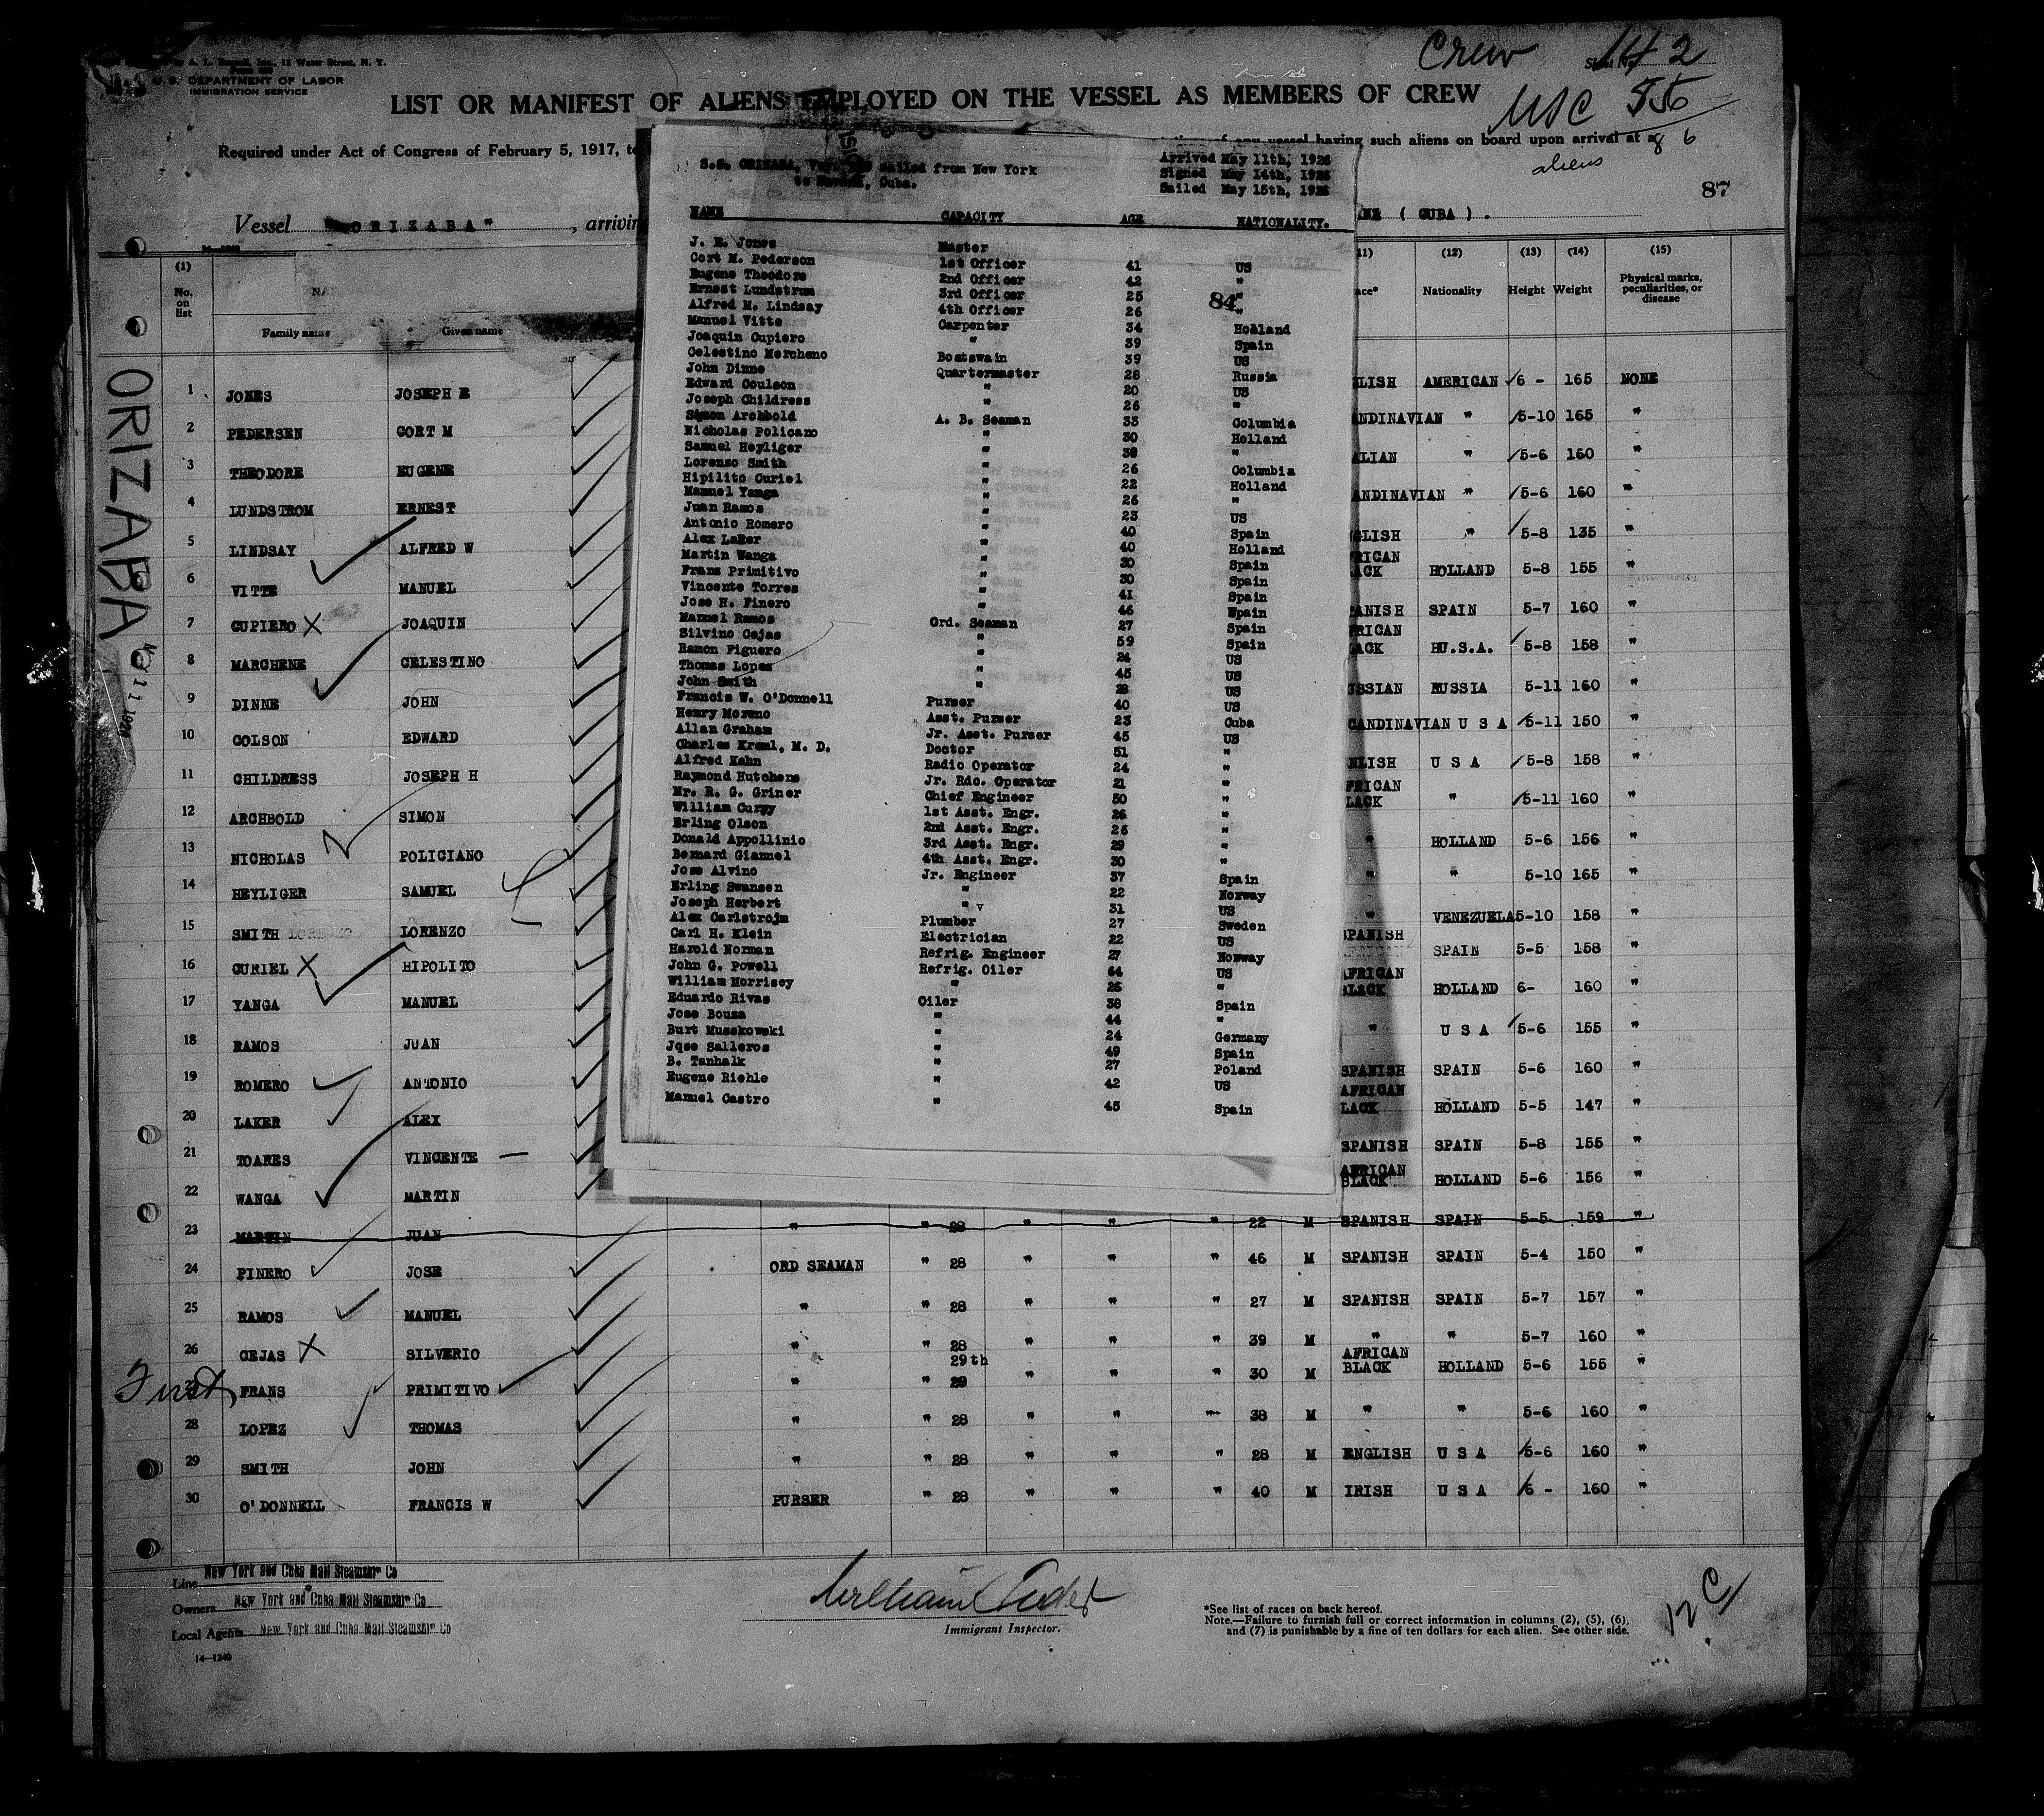 Crew 142
U. S. DEPARTMENT OF LABOR
IMMIGRATION SERVICE
LIST OR MANIFEST OF ALIENS EMPLOYED ON THE VESSEL AS MEMBERS OF CREW
USC 556
Required under Act of Congress of February 5, 1917, to
vessel having such aliens on board upon arrival at a
86
aliens
87
Vessel "ORIZABA" , arrivin
( CUBA ) .
S.S. ORIZABA, sailed from New York
to Havana, Cuba.
Arrived May 11th, 1926
Signed May 14th, 1926
Sailed May 15th, 1926
NAME CAPACITY AGE NATIONALITY.
J. E. Jones Master
Cort M. Pederson 1st Officer 41 US
Eugene Theodore 2nd Officer 42 "
Ernest Lundstrum 3rd Officer 25 "
84
Alfred M. Lindsay 4th Officer 26 "
Manuel Vitte Carpenter 34 Holland
Joaquin Cupiero " 39 Spain
Celestino Mercheno Boatswain 39 US
John Dinne Quartermaster 28 Russia
Edward Coulson " 20 US
Joseph Childress " 26 "
Simon Archbold A. B. Seaman 33 Columbia
Nicholas Policano " 30 Holland
Samuel Heyliger " 38 "
Lorenzo Smith " 26 Columbia
Hipilito Curiel " 22 Holland
Manuel Yanga " 26 "
Juan Ramos " 23 US
Antonio Romero " 40 Spain
Alex Laker " 40 Holland
Martin Wanga " 30 Spain
Frans Primitivo " 30 Spain
Vincente Torres " 41 Spain
Jose H. Finero " 46 Spain
Manuel Ramos Ord. Seaman 27 Spain
Silvino Cejas " 59 Spain
Ramon Figuero " 24 US
Thomas Lopez " 45 US
John Smith " 28 US
Francis W. O'Donnell Purser 40 US
Henry Moreno Asst. Purser 23 Cuba
Allan Graham Jr. Asst. Purser 45 US
Charles Kreml, M. D. Doctor 51 "
Alfred Kahn Radio Operator 24 "
Raymond Hutchens Jr. Rdo. Operator 21 "
Mr. R. G. Griner Chief Engineer 50 "
William Curry 1st Asst. Engr. 26 "
Erling Olson 2nd Asst. Engr. 26 "
Donald Appollinio 3rd Asst. Engr. 29 "
Bernard Giannel 4th Asst. Engr. 30 "
Jose Alvino Jr. Engineer 37 Spain
Erling Swansen " 22 Norway
Joseph Herbert " 31 US
Alex Carlstrojm Plumber 27 Sweden
Carl H. Klein Electrician 22 US
Harold Norman Refrig. Engineer 27 Norway
John G. Powell Refrig. Oiler 64 US
William Morrisey " 26 "
Eduardo Rivas Oiler 38 Spain
Jose Bouza " 44 "
Burt Musskowski " 24 Germany
Jqse Salleros " 49 Spain
B. Tanhalk " 27 Poland
Eugene Riehle " 42 US
Manuel Castro " 45 Spain
(1) (12) (13) (14) (15)
No. on list Family name Given name Nationality Height Weight Physical marks, peculiarities, or disease
ORIZABA
1 JONES JOSEPH E LISH AMERICAN 6 - 165 NONE
2 PEDERSEN CORT M NDINAVIAN " 5-10 165 "
3 THEODORE EUGENE ALIAN " 5-6 160 "
4 LUNDSTROM ERNEST ANDINAVIAN " 5-6 160 "
5 LINDSAY ALFRED W GLISH " 5-8 135 "
6 VITTE MANUEL RICAN ACK HOLLAND 5-8 155 "
7 CUPIERO X JOAQUIN ANISH SPAIN 5-7 160 "
8 MARCHENE CELESTINO RICAN ACK HU.S.A. 5-8 158 "
9 DINNE JOHN SSIAN RUSSIA 5-11 160 "
10 COLSON EDWARD CANDINAVIAN U S A 5-11 150 "
11 CHILDRESS JOSEPH H GLISH U S A 5-8 158 "
12 ARCHBOLD SIMON FRICAN LACK " 5-11 160 "
13 NICHOLAS POLICIANO " HOLLAND 5-6 156 "
14 HEYLIGER SAMUEL " " 5-10 165 "
15 SMITH LORENZO LORENZO " VENEZUELA 5-10 158 "
16 CURIEL X HIPOLITO SPANISH SPAIN 5-5 158 "
17 YANGA MANUEL AFRICAN BLACK HOLLAND 6- 160 "
18 RAMOS JUAN " U S A 5-6 155 "
19 ROMERO ANTONIO SPANISH SPAIN 5-6 160 "
20 LAKER ALEX AFRICAN LACK HOLLAND 5-5 147 "
21 TOARES VINCENTE — SPANISH SPAIN 5-8 155 "
22 WANGA MARTIN AFRICAN BLACK HOLLAND 5-6 156 "
23 MARTIN JUAN " " 28 " " " 22 M SPANISH SPAIN 5-5 159 "
24 PINERO JOSE ORD SEAMAN " 28 " " " 46 M SPANISH SPAIN 5-4 150 "
25 RAMOS MANUEL " " 28 " " " 27 M SPANISH SPAIN 5-7 157 "
26 CEJAS X SILVERIO " " 28 " " " 39 M " " 5-7 160 "
First FRANS PRIMITIVO " 29th 28 " " " 30 M AFRICAN BLACK HOLLAND 5-6 155 "
28 LOPEZ THOMAS " " 28 " " " 38 M " " 5-6 160 "
29 SMITH JOHN " " 28 " " " 28 M ENGLISH U S A 5-6 160 "
30 O'DONNELL FRANCIS W PURSER " 28 " " " 40 M IRISH U S A 6 - 160 "
Line New York and Cuba Mail Steamship Co
Owners New York and Cuba Mail Steamship Co
Local Agents New York and Cuba Mail Steamship Co
14—1240
Immigrant Inspector.
*See list of races on back hereof.
Note.—Failure to furnish full or correct information in columns (2), (5), (6),
and (7) is punishable by a fine of ten dollars for each alien. See other side.